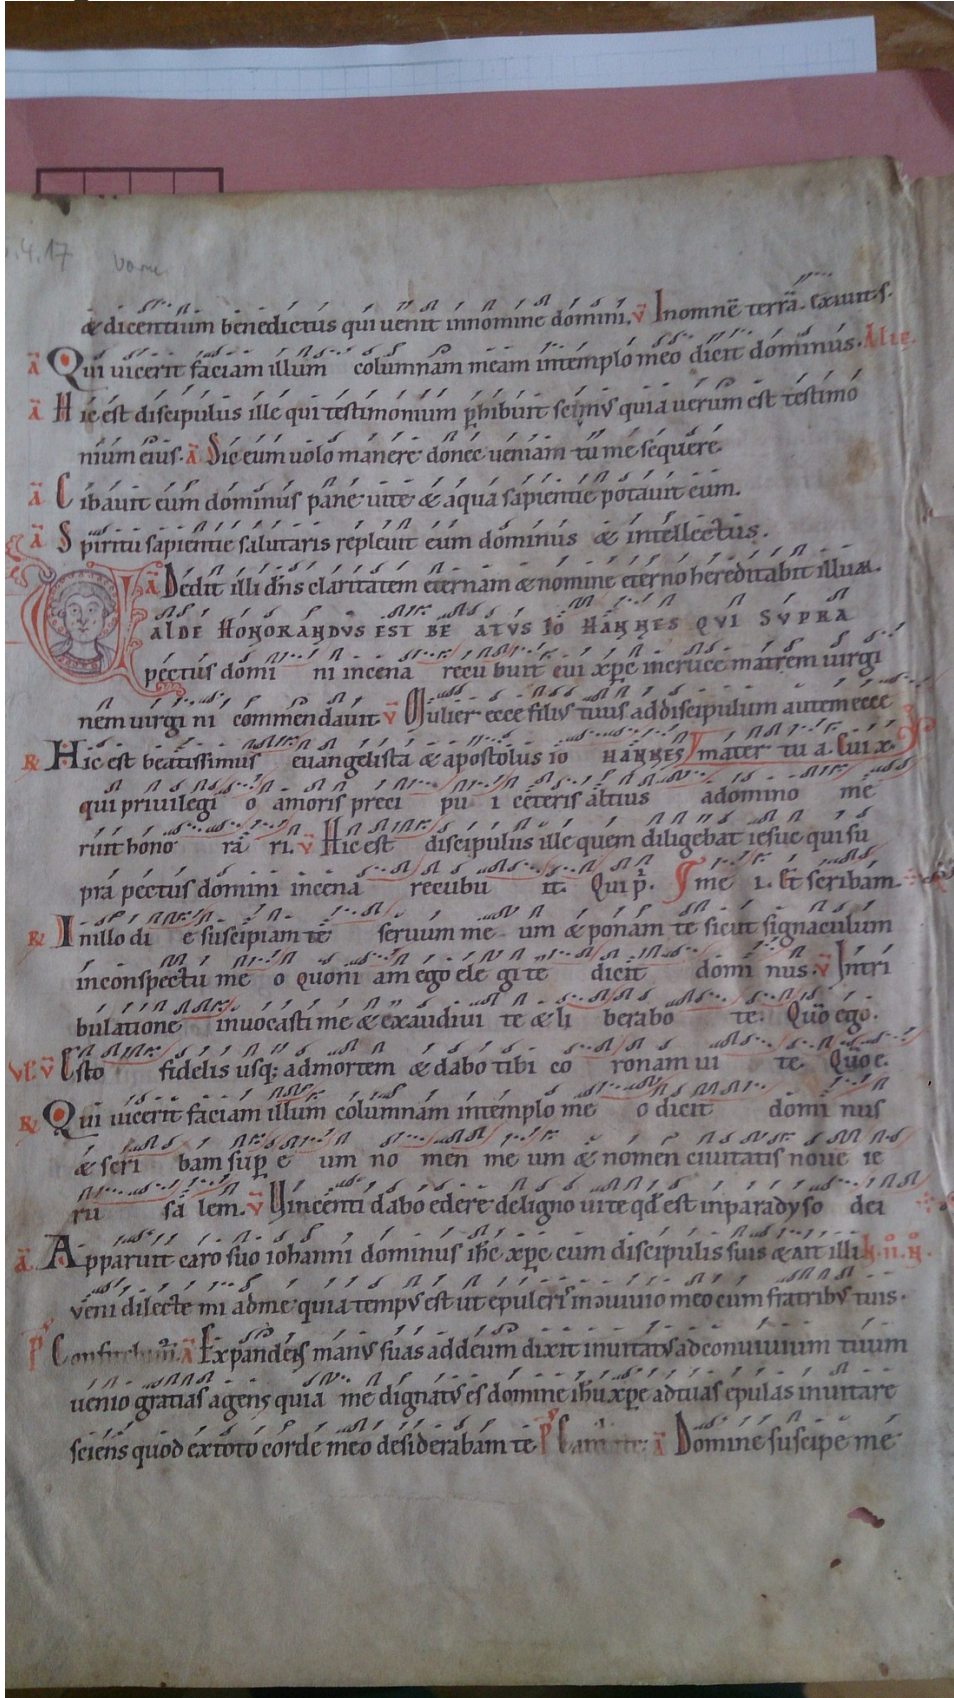 .4.17
& dicentium benedictus qui uenit innomine domini. v Inomnē terrā. exiuit s.
ā Qui uicerit faciam illum columnam meam intemplo meo dicit dominus. Alle.
ā Hic est discipulus ille qui testimonium phibuit scimus quia uerum est testimo
nium eius. ā Sic eum uolo manere donec ueniam tu me sequere
ā Cibauit eum dominus pane uite & aqua sapientie potauit eum.
ā Spiritu sapientie salutaris repleuit eum dominus & intellectus.
ā Dedit illi dn̄s claritatem eternam & nomine eterno hereditabit illum.
VALDE HONORANDVS EST BE ATVS IO HANNES QVI SVPRA
pectus domi ni incena recu buit cui xp̄c incruce matrem uirgi
nem uirgi ni commendauit v Mulier ecce filius tuus addiscipulum autem ecce
R Hic est beatissimus euangelista & apostolus io HANNES mater tu a. Cui x.
qui privilegi o amoris preci pu i ceteris altius adomino me
ruit hono ra ri. v Hic est discipulus ille quem diligebat iesus qui su
pra pectus domini incena recubu it. Qui p. me i. Et scribam.
R Inillo di e suscipiam te seruum me um & ponam te sicut signaculum
inconspectu me o quoni am ego ele gi te dicit domi nus. v Intri
bulatione inuocasti me & exaudiui te & li berabo te. Quō ego.
Vl. v Esto fidelis usq; admortem & dabo tibi co ronam ui te. Quō e.
R Qui uicerit faciam illum columnam intemplo me o dicit domi nus
& scri bam sup e um no men me um & nomen ciuitatis noue ie
ru sa lem. v Vincenti dabo edere deligno uite qd est inparadyso dei
ā Apparuit caro suo iohanni dominus ihc xpc cum discipulis suis & ait illi
veni dilecte mi adme quia tempus est ut epuleris inconuiuio meo cum fratribus tuis.
ā Expandens manus suas addeum dixit inuitatus adconuiuium tuum
uenio gratias agens quia me dignatus es domine ihu xpe adtuas epulas inuitare
sciens quod extoto corde meo desiderabam te ā Domine suscipe me